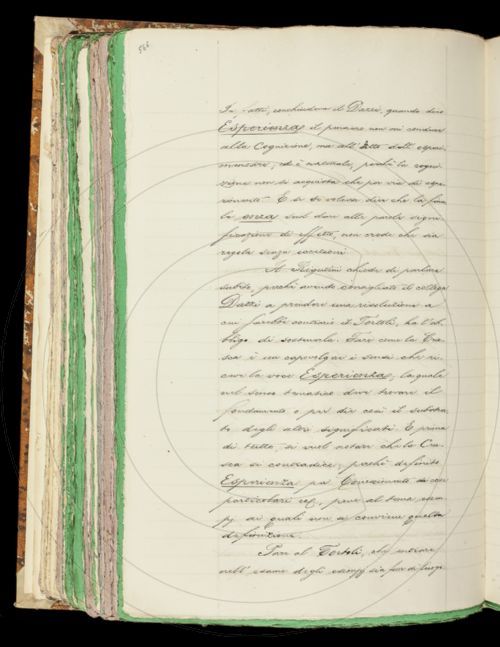 566
In fatti, conchiudeva il Dazzi, quando dico
Esperienza il pensiero non mi conduce
alla Cognizione, ma all'Atto dell'esperi-
mentare, ed è naturale, perchè la cogni-
zione non si acquista che per via di espe-
rimenti. E se si voleva dire che la fina-
le enza suol dare alle parole signi-
ficazioni di effetto, non crede che sia
regola senza eccezioni.
Il Tirapelini chiede di parlare
subito, perchè avendo consigliato il collega
Dazzi a prendere una risoluzione a
cui sarebbe contrario il Tortoli, ha l'ob-
bligo di sostenerla. Fare come la Cru-
sca è un capovolgere i sensi che ri-
ceve la voce Esperienza, la quale
nel senso tematico deve trovare il
fondamento o per dir così il substra-
to degli altri significati. E prima
di tutto, si vuol notare che la Cru-
sca si contraddice, perchè definito
Esperienza per Conoscimento di cose
particolari ec., pone al tema esem-
pj ai quali non si conviene quella
definizione.
Pare al Tortoli, che entrare
nell'esame degli esempj sia fuor di luogo